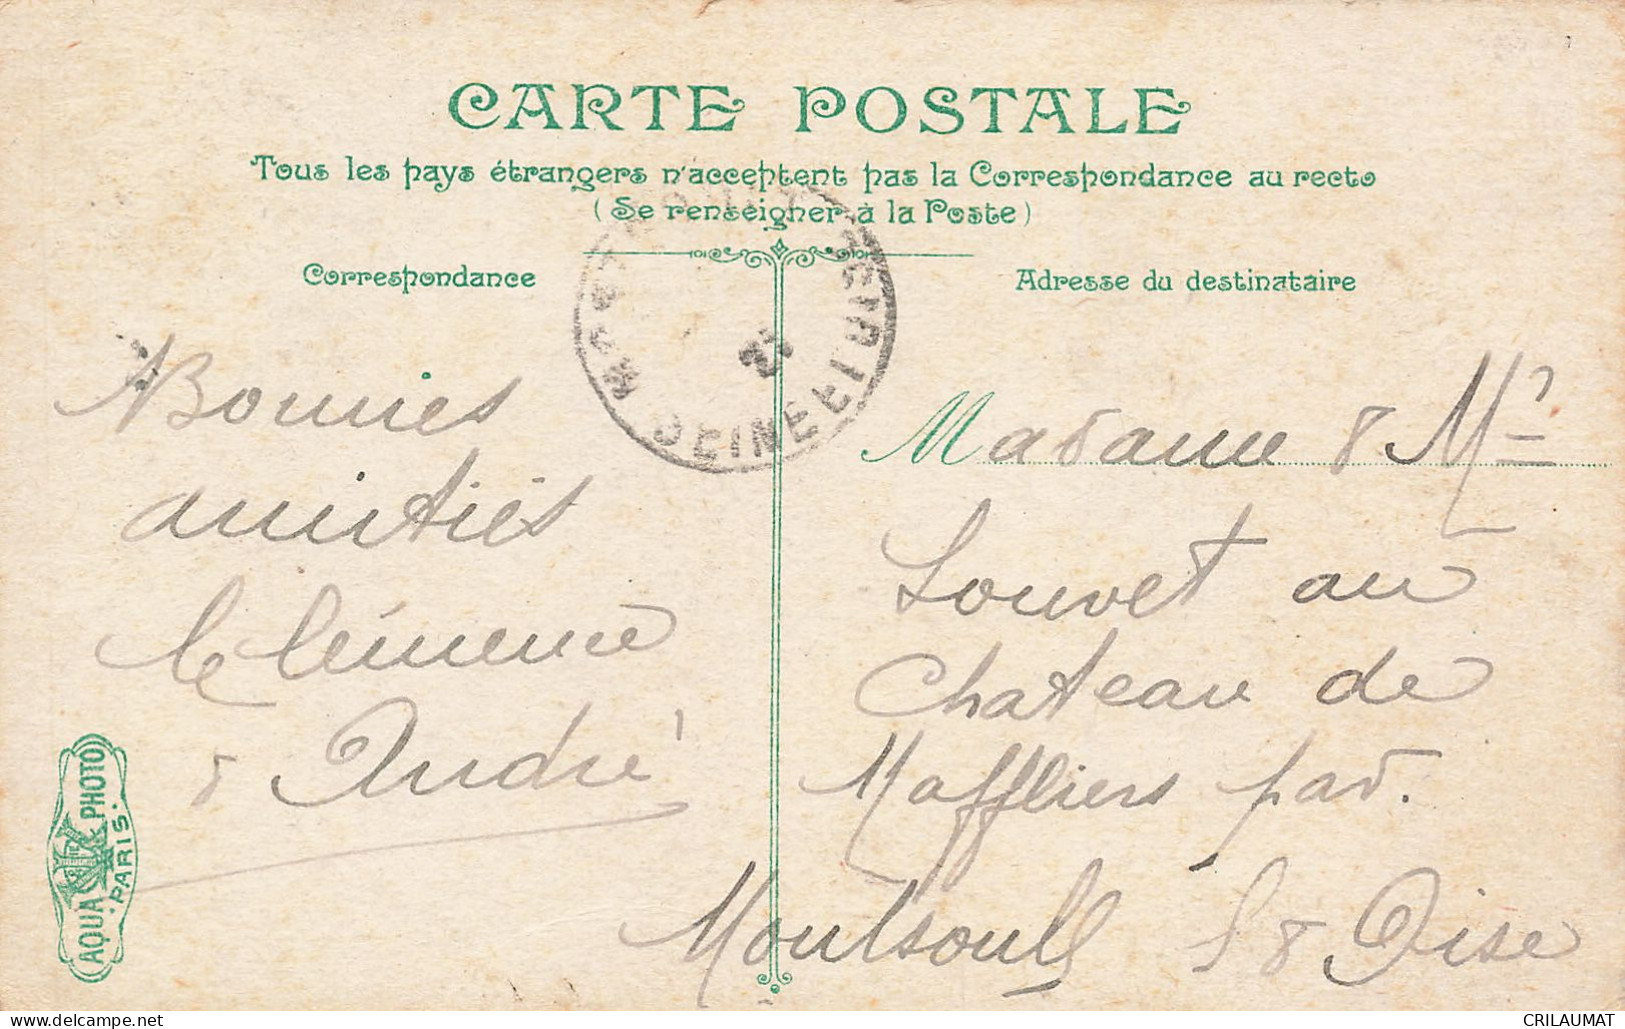 CARTE POSTALE
Tous les pays étrangers n'acceptent pas la Correspondance au recto
(Se renseigner à la Poste)
Correspondance
Adresse du destinataire
Bonnes
amitiés
Clémence
& André
Madame & Mr
Louvet au
Chateau de
Maffliers par
Moultsoult S & Oise
SEINE
AQUA PHOTO
PARIS.
CRILAUMAT